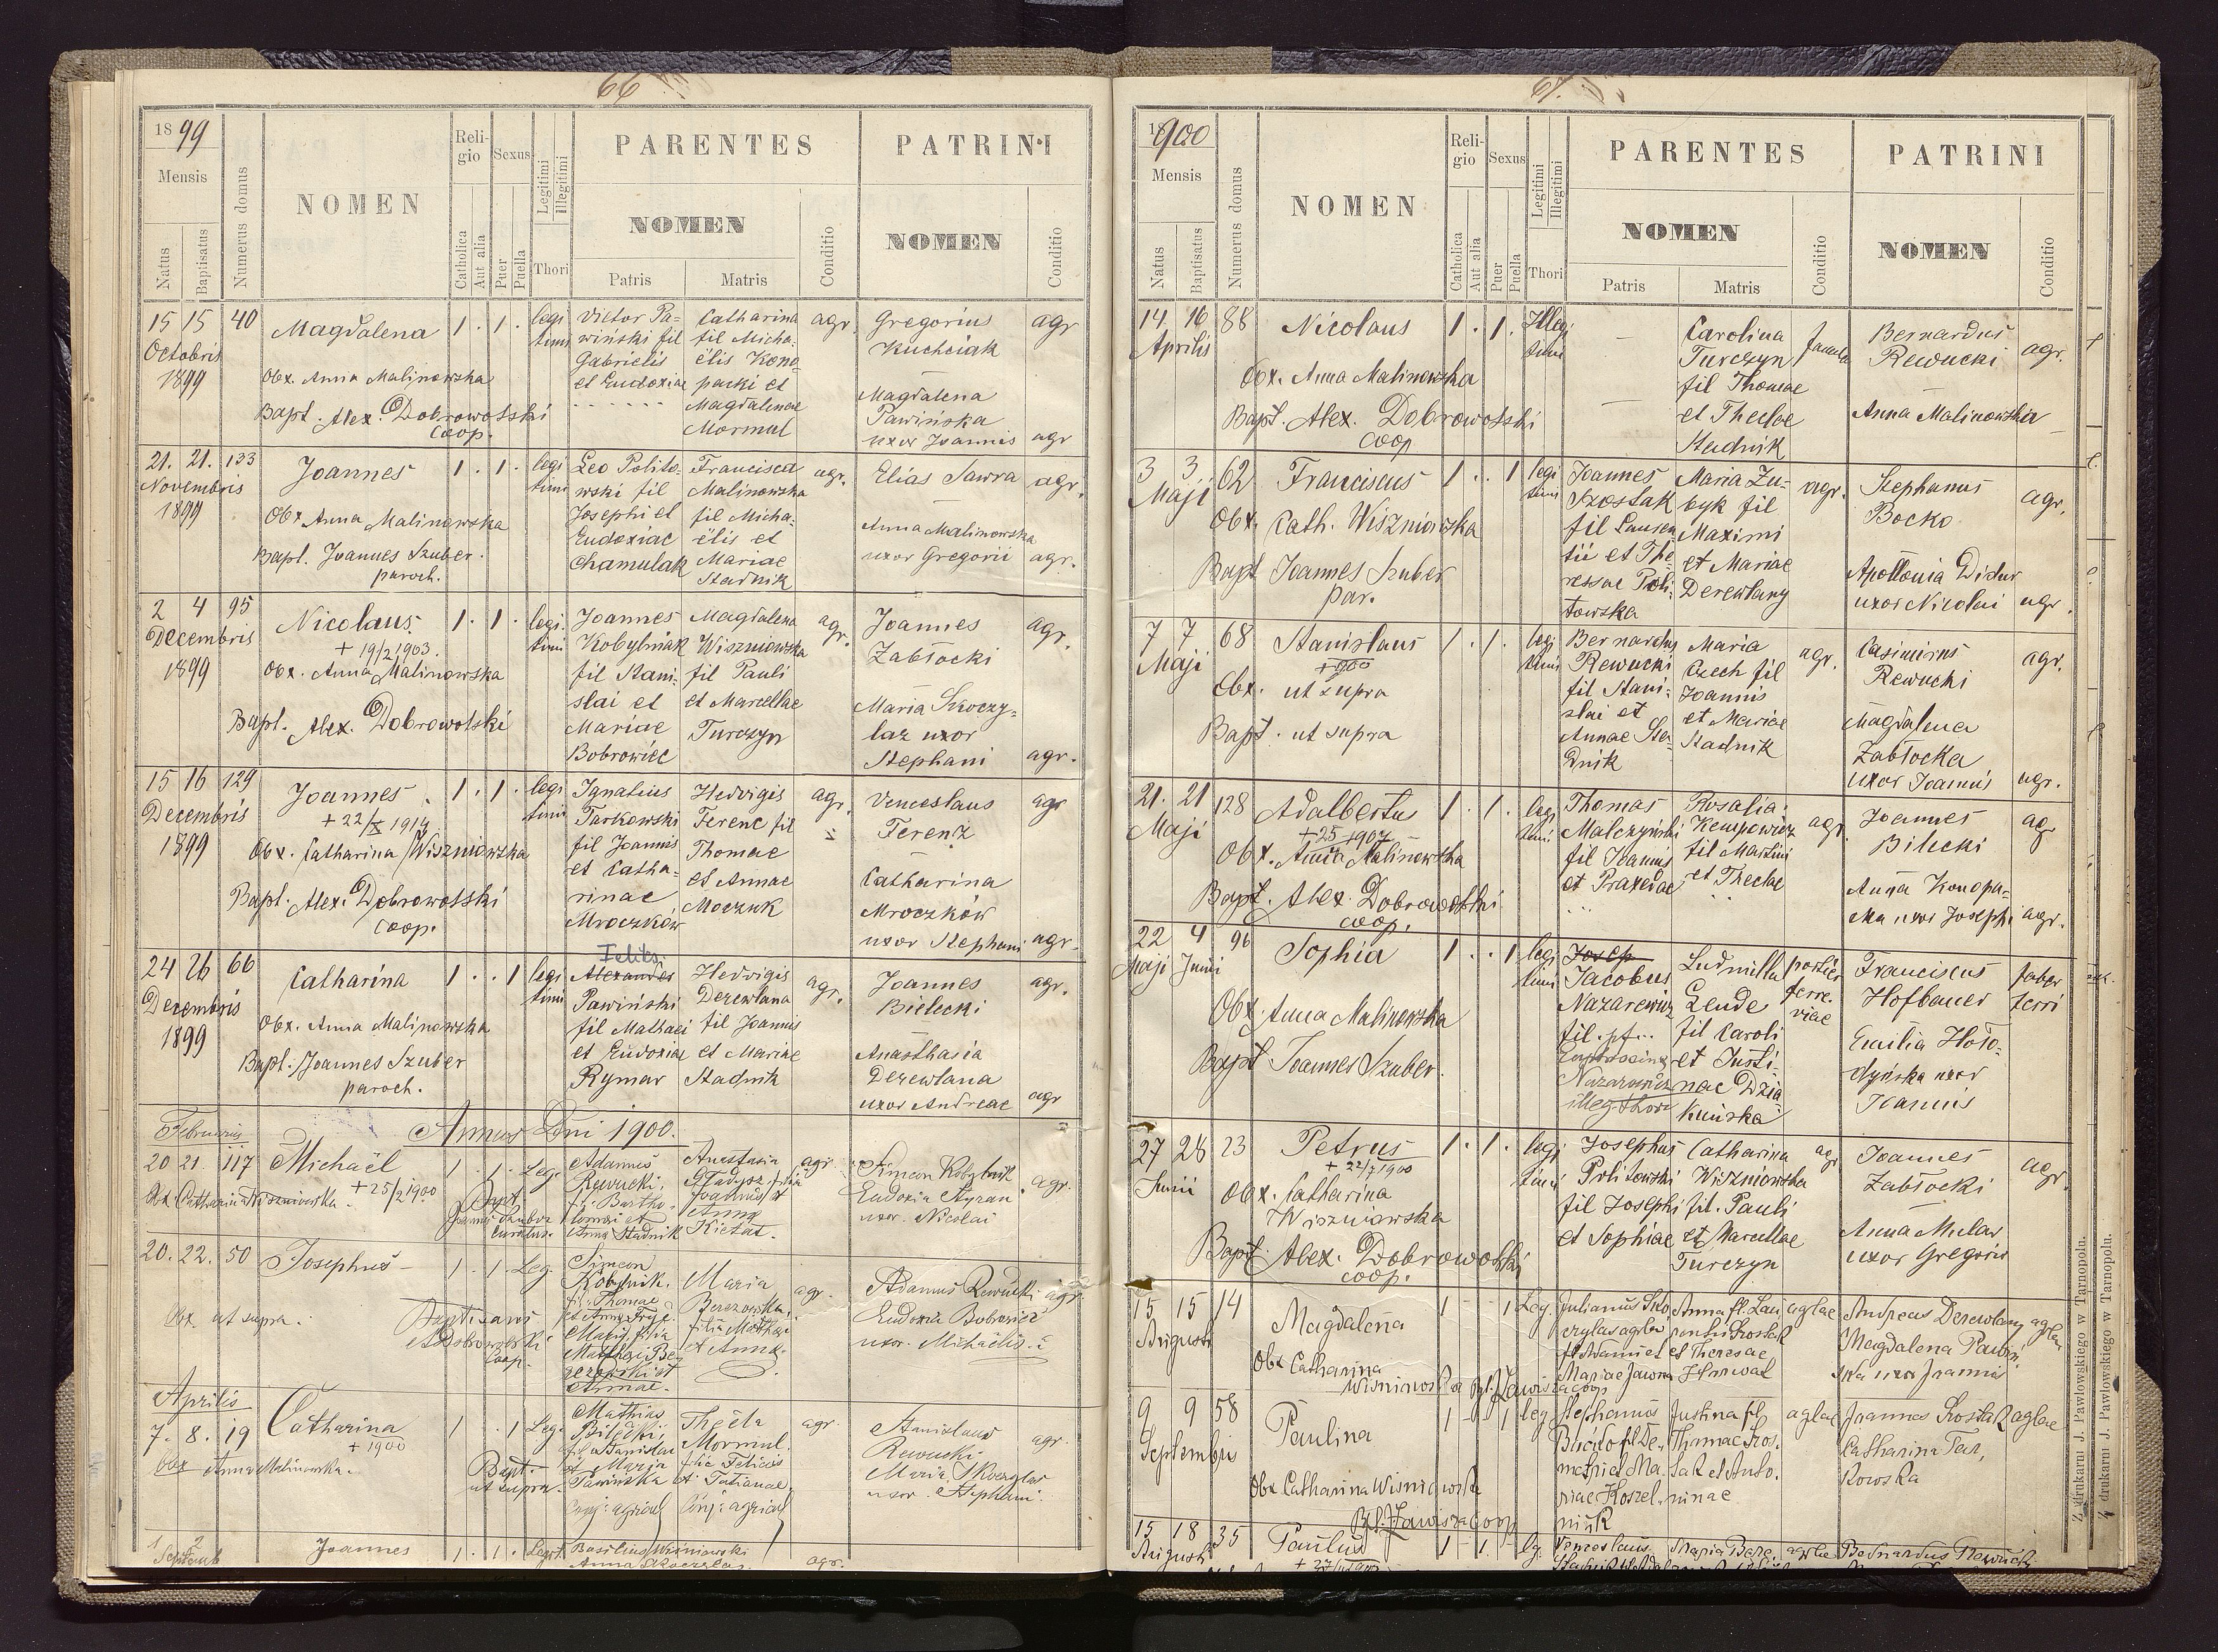 66
1899
Mensis
Natus
Baptisatus
Numerus domus
NOMEN
Religio
Catholica
Aut alia
Sexus
Puer
Puella
Legitimi
Illegitimi
Thori
PARENTES
NOMEN
Patris
Matris
Conditio
PATRINI
NOMEN
Conditio
15 15 40 Magdalena 1 . 1 . legi timi
Octobris
1899
Obx. Anna Malinowska
Bapt. Alex. Dobrowolski
Coop.
Victor Pa-
wiński fil
Gabrielis
et Eudoxiae
Catharina
fil Micha-
ëlis Kono
packi et
Magdalenae
Mormul
agr.
Gregorius
Kuchciak
agr
Magdalena
Pawińska
uxor Joannis agr
21. 21. 133 Joannes 1 . 1 . legi timi
Novembris
1899
Obx Anna Malinowska
Bapt. Joannes Szuber.
paroch.
Leo Polito-
wski fil
Josephi et
Eudoxiae
Chamulak
Francisca
Malinowska
fil Micha-
ëlis et
Mariae
Stadnik
agr.
Elias Sawra agr.
Anna Malinowska
uxor Gregorii agr.
2 4 95 Nicolaus 1 . 1 . legi timi
Decembris
+ 19/2 1903.
1899
Obx. Anna Malinowska
Bapt. Alex. Dobrowolski
Joannes
Kobylnik
fil Stani-
slai et
Mariae
Bobrowiec
Magdalena
Wiszniowska
fil Pauli
et Marcellae
Turczyn
agr.
Joannes
Zabłocki
agr.
Maria Skoczy-
laz uxor
Stephani agr.
15 16 129 Joannes 1 . 1 . legi timi
Decembris
+ 22/X 1914
1899
Obx. Catharina Wiszniowska
Bapt. Alex. Dobrowolski
Coop.
Ignatius
Tarkowski
fil Joannis
et Catha-
rinae
Mroczków
Hedvigis
Ferenc fil
Thomae
et Annae
Moczuk
agr.
Venceslaus
Ferenz
agr
Catharina
Mroczków
uxor Stephani agr.
24 26 66 Catharina 1 . . 1 legi timi
Decembris
1899
Obx. Anna Malinowska
Bapt. Joannes Szuber
paroch.
Feliks
Alexander
Pawiński
fil Mathaei
et Eudoxiae
Rymar
Hedvigis
Derewlana
fil Joannis
et Mariae
Stadnik
agr.
Joannes
Bielecki
agr.
Anasthasia
Derewlana
uxor Andreae agr
Annus Dni 1900.
Februarii
20 21. 117 Michaël 1 . 1 . Leg.
+ 25/2 1900
Obx Catharina Wiszniowska.
Bapt.
Joannes Szuber
Curatus.
Adamus
Rewucki
fil Bartho-
lomei et
Anna Stadnik
Anastasia
filia
Joannis et
Anna
agr.
Simeon Kobylnik agr.
Eudoxia
uxor. Nicolai
20. 22. 50 Josephus 1 . 1 . Leg.
Obx ut supra.
Baptisavi
ADobrowolski
Coop.
Simeon
Kobylnik.
fil Thomae
Maria
Berezowska,
filia Mathei
et Anna.
agr.
Adamus Rewucki agr
Eudoxia Bobrowiec
uxor. Michaëlis.
Aprilis
7. 8. 19 Catharina 1 . 1 Leg.
+ 1900
Obx Anna Malinowska.
Bapt.
ut supra.
Mathias
Bilecki,
fil Stanislai
et Maria
Pawińska
Thecla
Mormul.
filia Felicis
et Tatianae.
agr.
Stanislaus
Rewucki
agr.
Maria Skoczylas
uxor. Stephani.
1 2 Joannes 1 . 1 . Legit.
Septemb
Basilius Wiśniowski
Anna Skoczylas
agr.
67
1900
Mensis
Natus
Baptisatus
Numerus domus
NOMEN
Religio
Catholica
Aut alia
Sexus
Puer
Puella
Legitimi
Illegitimi
Thori
PARENTES
NOMEN
Patris
Matris
Conditio
PATRINI
NOMEN
Conditio
14 16 88 Nicolaus 1 . 1. Illegi timi
Aprilis
Obx. Anna Malinowska
Bapt. Alex. Dobrowolski
coop
Carolina
Turczyn
fil Thomae
et Theclae
Stadnik
famula
Bernardus
Rewucki
agr.
Anna Malinowska
3 3 62 Franciscus 1 . . 1 legi timi
Maji
Obx. Cath. Wiszniowska
Bapt Joannes Szuber
par.
Joannes
Szostak
fil Lauren
tii et The
ressae Poli-
towska
Maria Zu-
byk fil
Maximi
et Mariae
Derewlany
agr.
Stephanus
Bocko
agr.
Apollonia Didur
uxor Nicolai agr.
7 7 68 Stanislaus 1 . 1 . legi timi
Maji
+ 1900
Obx. ut supra
Bapt. ut supra
Bernardus
Rewucki
fil Stani-
slai et
Annae Sta-
dnik
Maria
Czech fil
Joannis
et Mariae
Stadnik
agr.
Casimirus
Rewucki
agr.
Magdalena
Zabłocka
uxor Joannis agr.
21. 21 128 Adalbertus 1 . 1 . legi timi
Maji
Obx. Anna Malinowska
Bapt. Alex. Dobrowolski
coop.
Thomas
Malczyński
fil Joannis
et Praxedae
Rosalia
Kempowicz
fil Martini
et Theclae
agr.
Joannes
Bilecki
agr
Anna Konopa-
cka uxor Josephi agr.
22 4 96 Sophia 1 . . 1 legi timi
Maji Junii
Obx. Anna Malinowska
Bapt Joannes Szuber.
Josep
Jacobus
Nazarewicz
fil
Nazarewicz
illeg. thori
Ludmilla
Lende
fil Caroli
et Justi-
nae Dzia
kuńska
portier
ferre.
viae
Franciscus
Hofbauer
faber
ferri
Emilia Hoło-
dyńska uxor
Joannis
27 28 23 Petrus 1 . 1 . legi timi
Junii
+ 22/7 1900
Obx. Catharina
Wiszniowska
Bapt. Alex. Dobrowolski
coop.
Josephus
Politowski
fil Josephi
et Sophiae
Catharina
Wiszniowska
fil. Pauli
et Marcellae
Turczyn
agr
Joannes
Zabłocki
agr.
Anna Mular
uxor Gregorii
15 15 14 Magdalena 1 - 1 Leg.
Augusti
Obx Catharina
Wisniowska
Julianus Sko
czylas agla
fil Adami et
Mariae Jawna
Anna fl. Lau
rentii Szostak
et Theresae
aglae
Andreas Derewlany aglae
Magdalena Pawiń
ska uxor Joannis
9 9 58 Paulina 1 - 1 leg
Septembris
Obx Catharina Wisniowska
Bpt. J. Zawisza Coop
Stephanus
fl De-
metri et Ma-
riae Koszel-
nik
Justina fl
Thomae Szos-
tak et Anto-
ninae
aglae
Joannes Szostak aglae
Catharina Tar,
kowska
15 18 35 Paulus 1 - 1 - lg.
Augusti
Venceslaus
Maria
aglae
Bernardus Rewucki
Z drukarni J. Pawłowskiego w Tarnopolu.
Z drukarni J. Pawłowskiego w Tarnopolu.